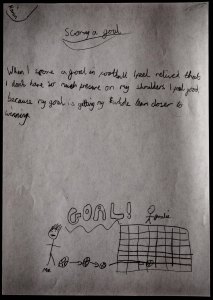 Scoring a goal
When I score a goal in football I feel relived that
I don't have so much pressure on my shoulders I feel good
because my goal is getting my kwikle team closer to
winning.
GOAL!
me